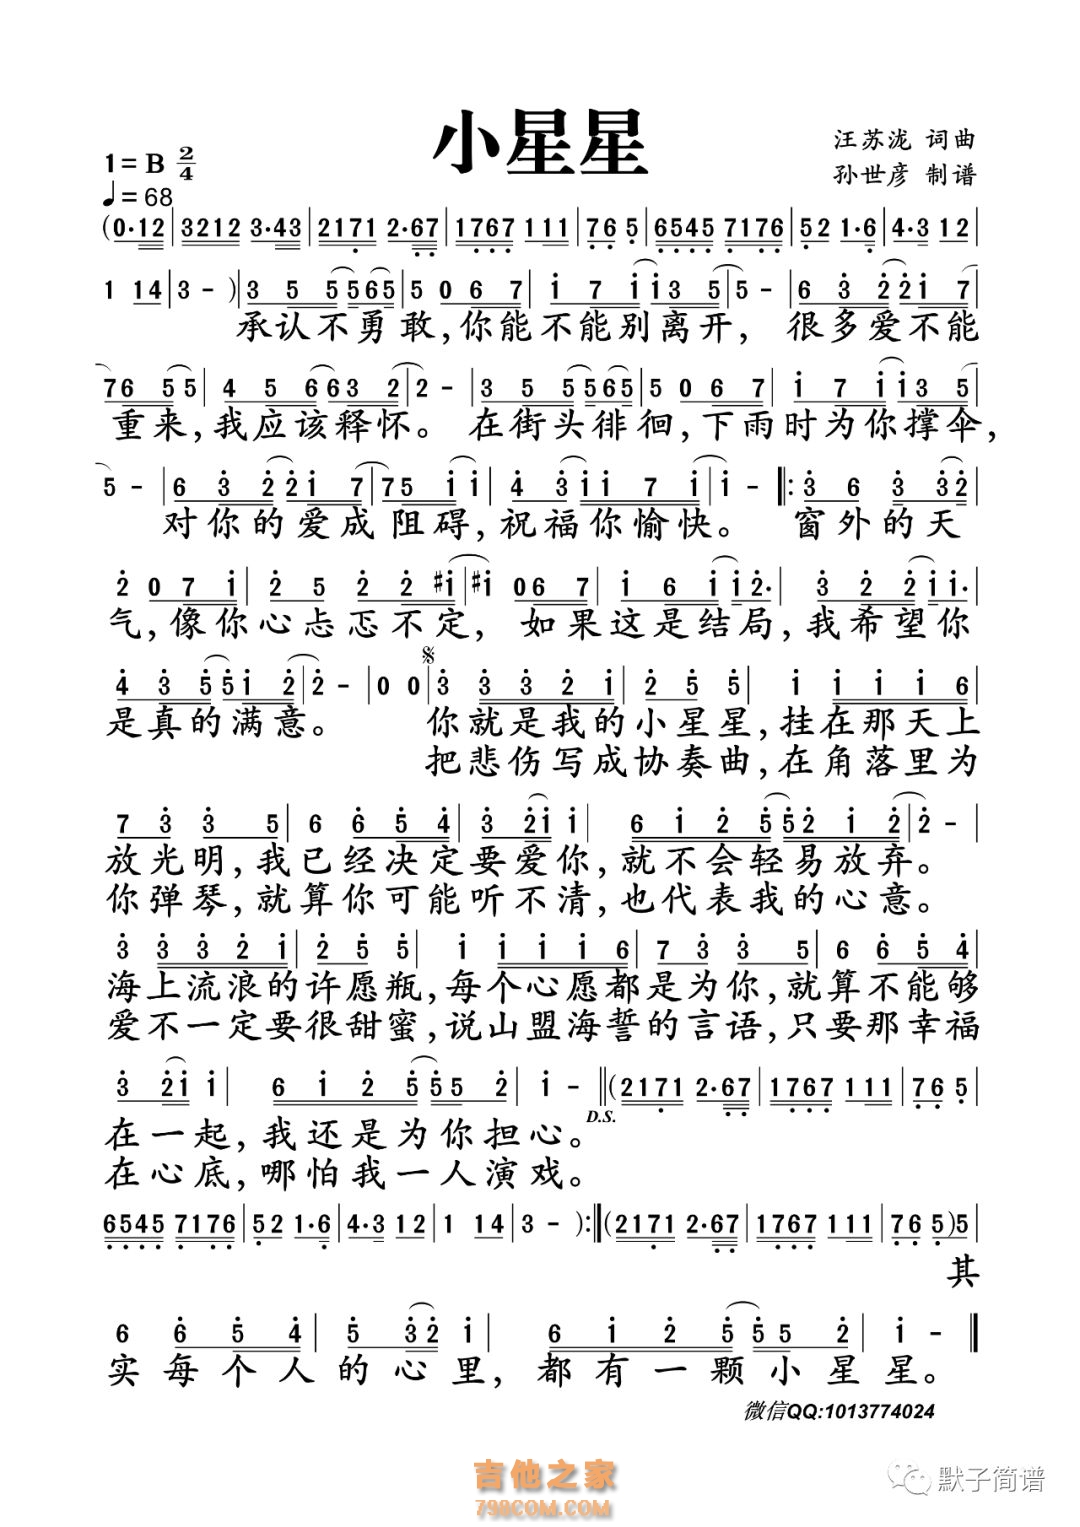 小星星
汪苏泷 词曲
1=B 2/4
孙世彦 制谱
♩=68
(0·12|3212 3·43|2171 2·67|1767 111|76 5|6545 7176|52 1·6|4·3 12|
1 14|3 -)|3 5 5565|5 0 6 7|i 7 ii35|5 -|6 3 22i7|
承认不勇敢,你能不能别离开, 很多爱不能
7655|4 5 6632|2 -|3 5 5565|5 0 6 7|i 7 ii35|
重来,我应该释怀。在街头徘徊,下雨时为你撑伞,
5 -|6 3 22i7|75 ii|4 3ii7i|i -‖:3 6 3 32|
对你的爱成阻碍,祝福你愉快。 窗外的天
2 0 7 i|2 5 2 2#i|#i 067|i 6 iii2·|3 2 2ii·|
气,像你心忐忑不定, 如果这是结局,我希望你
4 3 55i2|2 -|0 0|3 3321|2 5 5|i iii6|
是真的满意。 你就是我的小星星,挂在那天上
把悲伤写成协奏曲,在角落里为
7 3 3 5|6 6 5 4|3 2i i|6 i 2 552i2|2 -|
放光明,我已经决定要爱你,就不会轻易放弃。
你弹琴,就算你可能听不清,也代表我的心意。
3 332i|2 5 5|i iii6|7 3 3 5|6 6 5 4|
海上流浪的许愿瓶,每个心愿都是为你,就算不能够
爱不一定要很甜蜜,说山盟海誓的言语,只要那幸福
3 2i i|6 i 2 555 2|i -‖(2171 2·67|1767 111|76 5|
D.S.
在一起,我还是为你担心。
在心底,哪怕我一人演戏。
6545 7176|52 1·6|4·3 12|1 14|3 -):‖(2171 2·67|1767 111|76 5)5|
其
6 6 5 4|5 32 i|6 i 2 555 2|i -‖
实每个人的心里,都有一颗小星星。
微信QQ:1013774024
吉他之家
798COM.COM
默子简谱